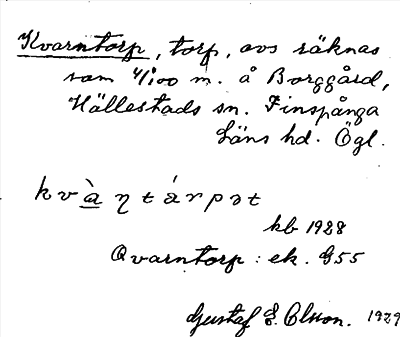 Kvarntorp, torp, avs räknas
som 4/100 m. å Borggård,
Hällestads sn. Finspånga
Läns hd. Ögl.
kvàṇtárpət
kb 1928
Qvarntorp: ek. G55
Gustaf E. Olsson. 1929